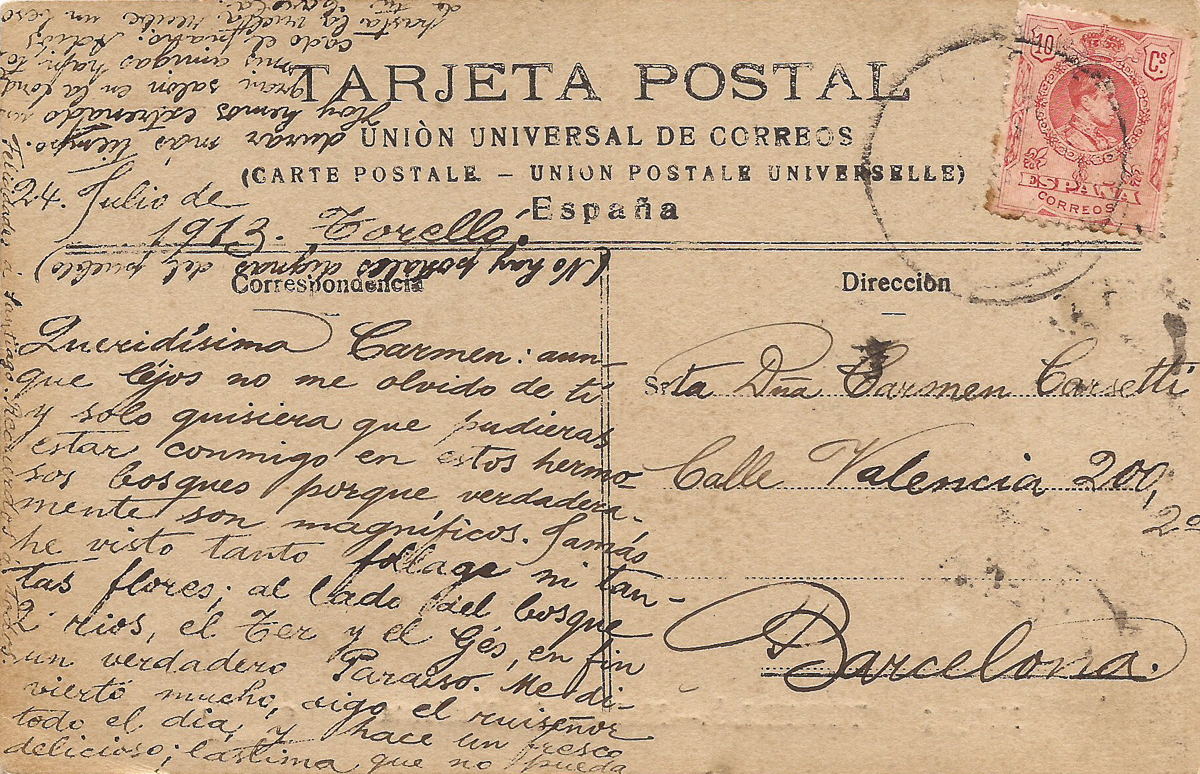 TARJETA POSTAL
UNIÒN UNIVERSAL DE CORREOS
(CARTE POSTALE – UNION POSTALE UNIVERSELLE)
España
10 Cs
ESPAÑA
CORREOS
24. Julio de
1913. Torelló.
(No hay postales dignas del pueblo)
Correspondencia
Queridísima Carmen: aun-
que léjos no me olvido de tí
y solo quisiera que pudieras
estar conmigo en estos hermo-
sos bosques porque verdadera-
mente son magníficos. Jamás
he visto tanto follage ni tan-
tas flores; al lado del bosque
2 rios, el Ter y el Gés, en fin
un verdadero Paraíso. Me di-
vierto mucho, oigo el ruiseñor
todo el día, y hace un fresco
delicioso; lástima que no pueda
durar más tiempo.
Hoy hemos estrenado un
gran salón en la fonda
mis amigas han to-
cado el piano. Adios
hasta la vuelta, recibe un beso
de tu
Felicidades á Santiago. Recuerdos a todos.
Dirección
Srta Dña Carmen Corsetti
Calle Valencia 200,
2º
Barcelona.